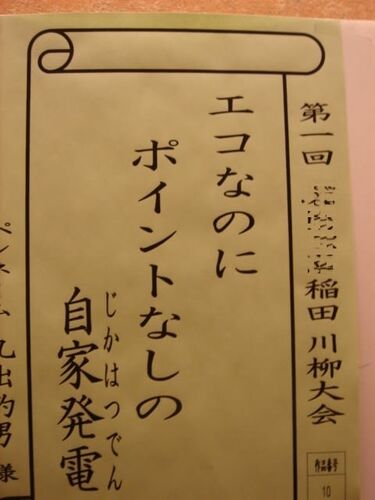 第一回 稲田 川柳大会
作品番号
10
エコなのに
ポイントなしの
じかはつでん
自家発電
ペンネーム 丸出的男 様